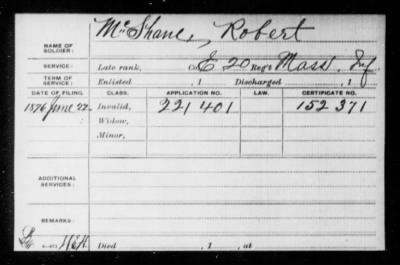 NAME OF SOLDIER: McShane, Robert
SERVICE: Late rank, Co. E 20 Reg't Mass. Inf.
TERM OF SERVICE: Enlisted , 1 Discharged , 1
DATE OF FILING. CLASS. APPLICATION NO. LAW. CERTIFICATE NO.
1876 June 22 Invalid, 221401 152371
Widow,
Minor,
ADDITIONAL SERVICES:
REMARKS:
Died , 1 , at